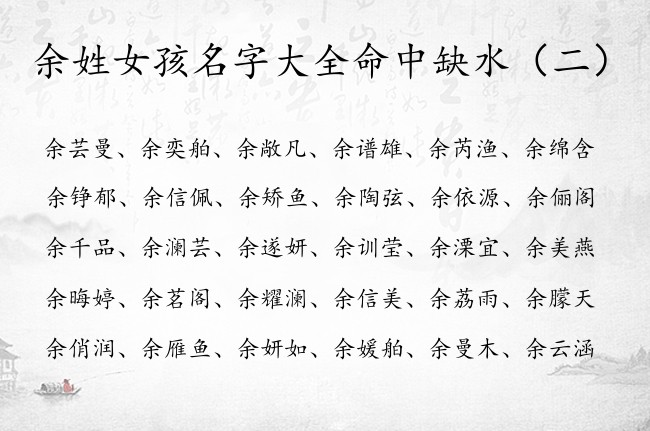 余姓女孩名字大全命中缺水（二）
余芸曼、余奕舶、余敞凡、余谱雄、余芮渔、余绵含
余铮郁、余信佩、余矫鱼、余陶弦、余依源、余俪阁
余千品、余澜芸、余遂妍、余训莹、余溧宜、余美燕
余晦婷、余茗阁、余耀澜、余信美、余荔雨、余朦天
余俏润、余雁鱼、余妍如、余媛舶、余曼木、余云涵